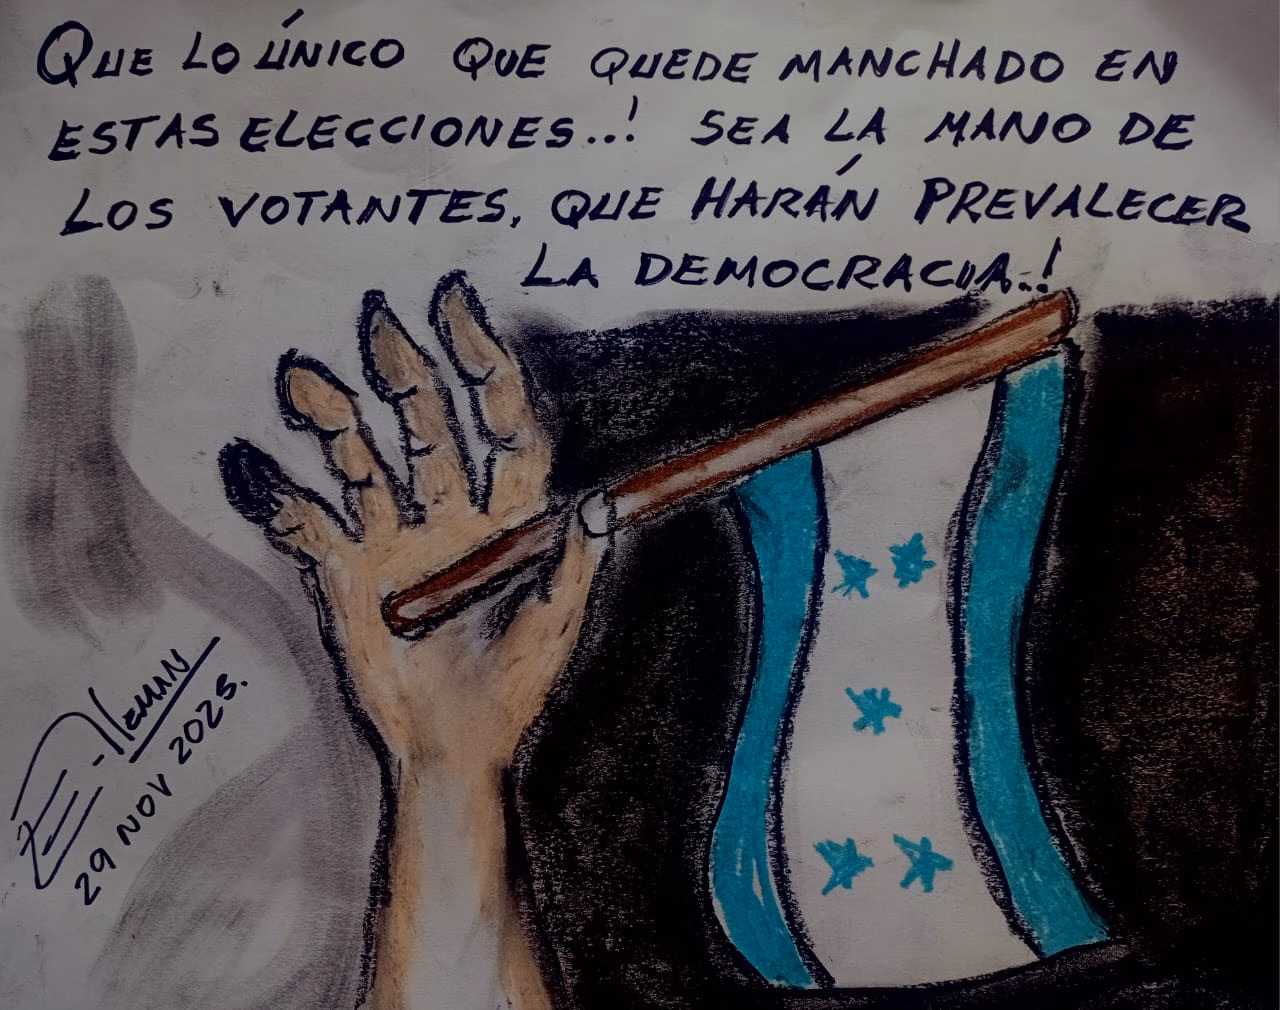 QUE LO ÚNICO QUE QUEDE MANCHADO EN
ESTAS ELECCIONES..! SEA LA MANO DE
LOS VOTANTES, QUE HARÁN PREVALECER
LA DEMOCRACIA..!
E-ALEMAN
29 NOV 2025.